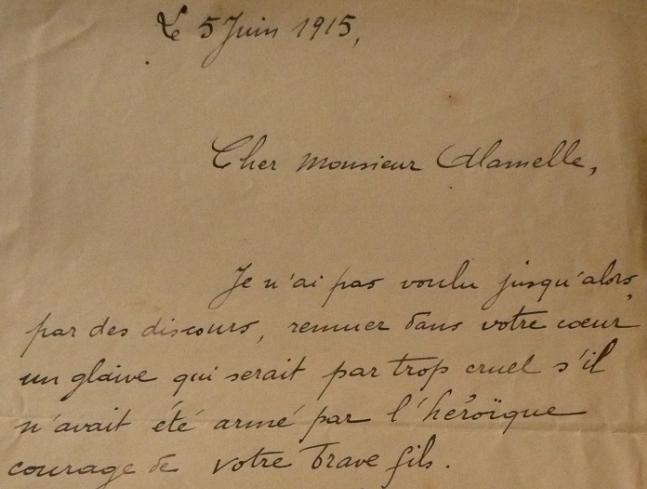 Le 5 Juin 1915,
Cher Monsieur Alamelle,
Je n'ai pas voulu jusqu'alors,
par des discours, remuer dans votre cœur
un glaive qui serait par trop cruel s'il
n'avait été armé par l'héroïque
courage de votre brave fils.